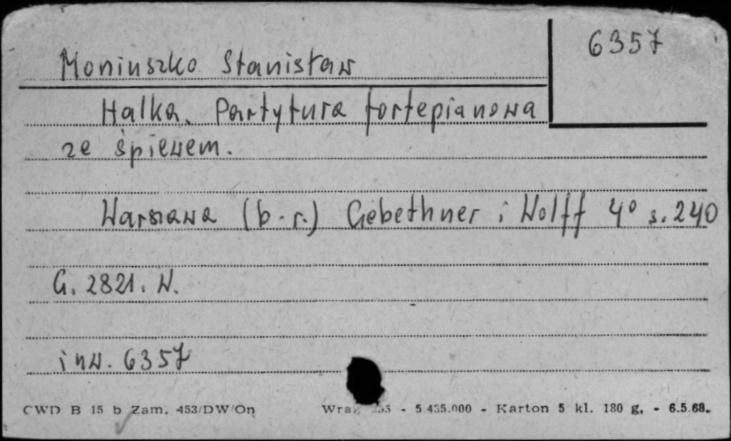 6357
Moniuszko Stanisław
Halka. Partytura fortepianowa
ze śpiewem.
Warszawa (b.r.) Gebethner i Wolff 4° s. 240
G. 2821. W.
inw. 6357
CWD B 15 b Zam. 453/DW/On - 5.435.000 - Karton 5 kl. 180 g. - 6.5.68.